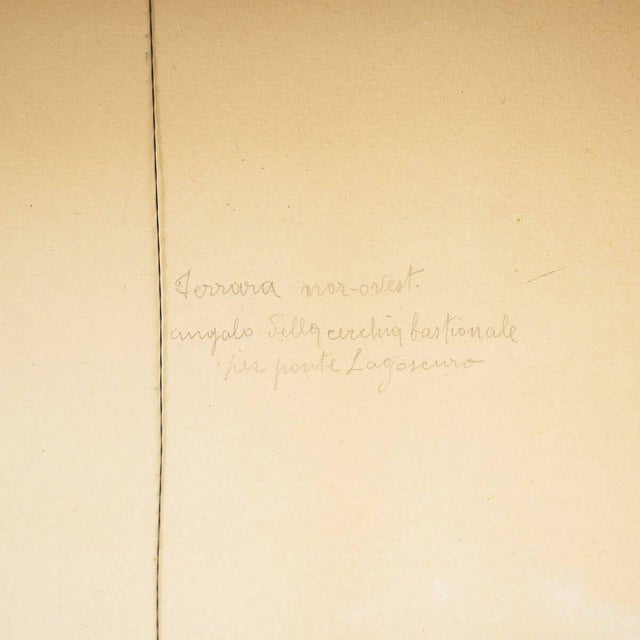 Ferrara nor-ovest.
angolo della cerchia bastionale
per ponte Lagoscuro